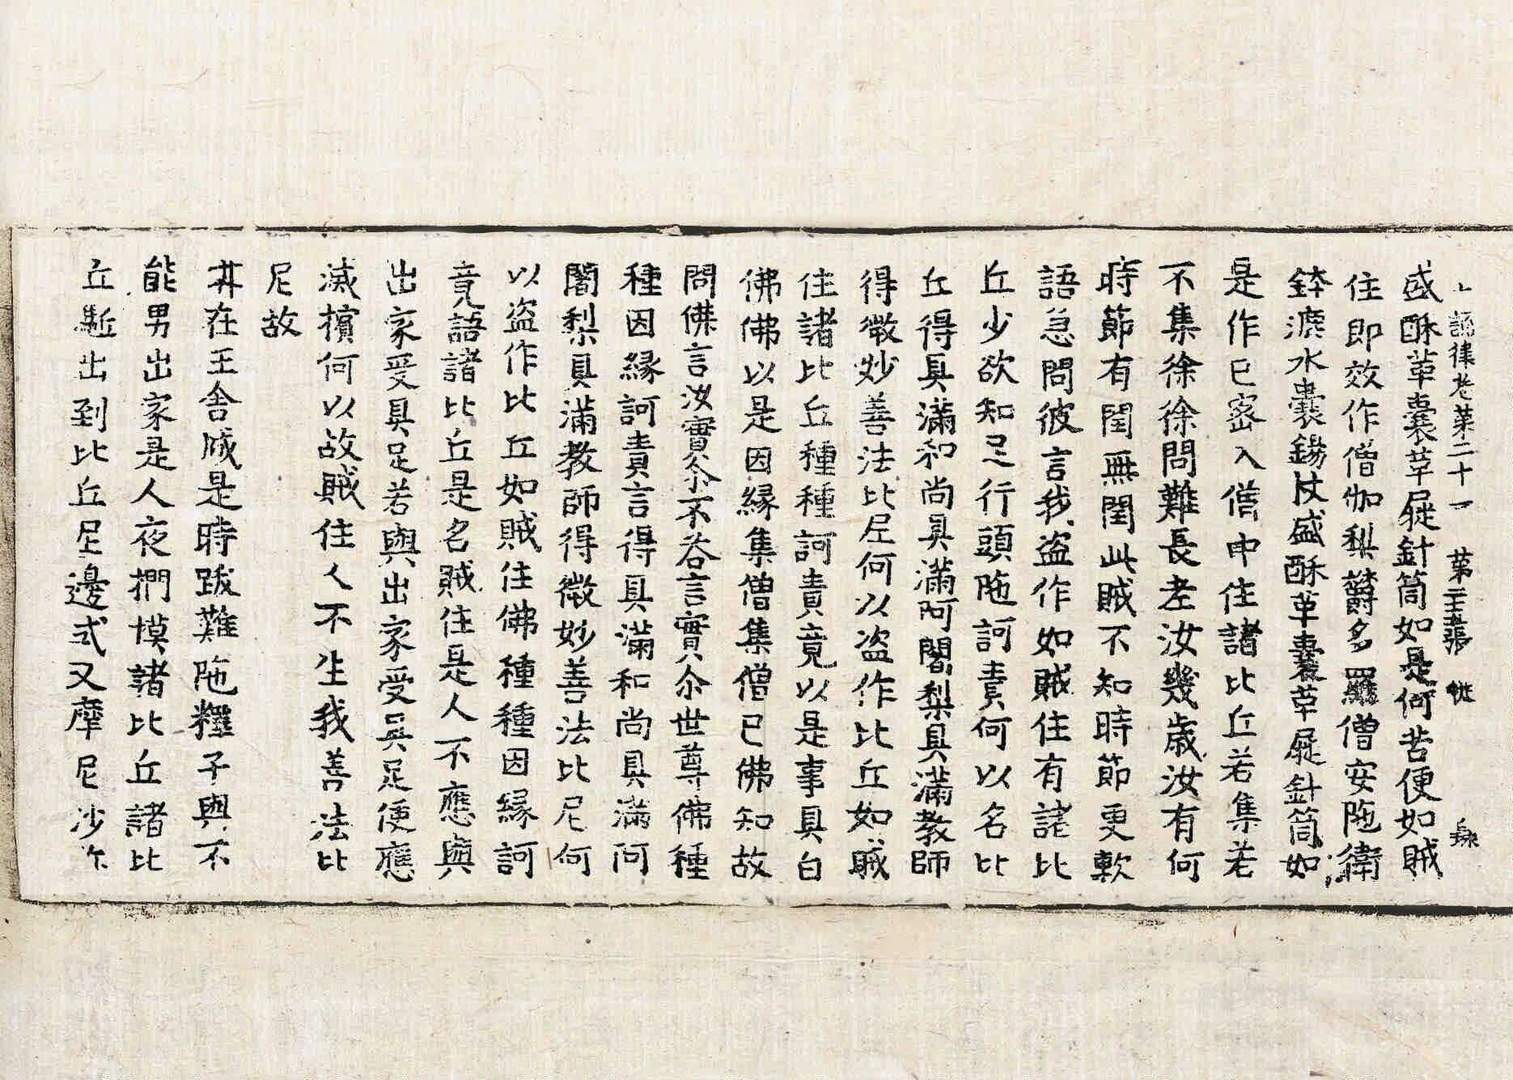 十誦律卷第二十一　第二十五張　從
盛酥革囊草屣針筒如是何苦便如賊
住即效作僧伽梨欝多羅僧安陁衛
鉢漉水囊錫杖盛酥革囊草屣針筒如
是作已密入僧中住諸比丘若集若
不集徐徐問難長老汝幾歲汝有何
時節有閏無閏此賊不知時節更軟
語急問彼言我盜作如賊住有諸比
丘少欲知足行頭陁訶責何以名比
丘得具滿和尚具滿阿闍梨具滿教師
得微妙善法比尼何以盜作比丘如賊
住諸比丘種種訶責竟以是事具白
佛佛以是因緣集僧集僧已佛知故
問佛言汝實尒不荅言實尒世尊佛種
種因緣訶責言得具滿和尚具滿阿
闍梨具滿教師得微妙善法比尼何
以盜作比丘如賊住佛種種因緣訶
竟語諸比丘是名賊住是人不應與
出家受具足若與出家受具足便應
滅擯何以故賊住人不生我善法比
尼故
丼在王舍城是時跋難陁釋子與不
能男出家是人夜捫摸諸比丘諸比
丘駈出到比丘尼邊式叉摩尼沙